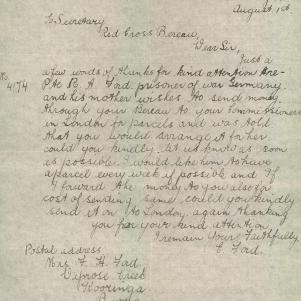 August, 1st
To Secretary
Red Cross Bereau,
Dear Sir,
Just a
few words of thanks for kind attention Re-
No 4174
Pte R. A. Fad. prisoner of war Germany.
and his mother wishes to send money
through your Bereau to your Commissioners
in London for parcels and was told
that you would arrange it for her
could you kindly let us know as soon
as possible. I would like him to have
a parcel every week if possible and if
I forward the money to you also for
cost of sending same could you kindly
send it on to London. again thanking
you for your kind attention
I remain Yours Faithfully
E. Fad.
Postal address
Mrs F. H. Fad.
Creek
Kooringa
Burra